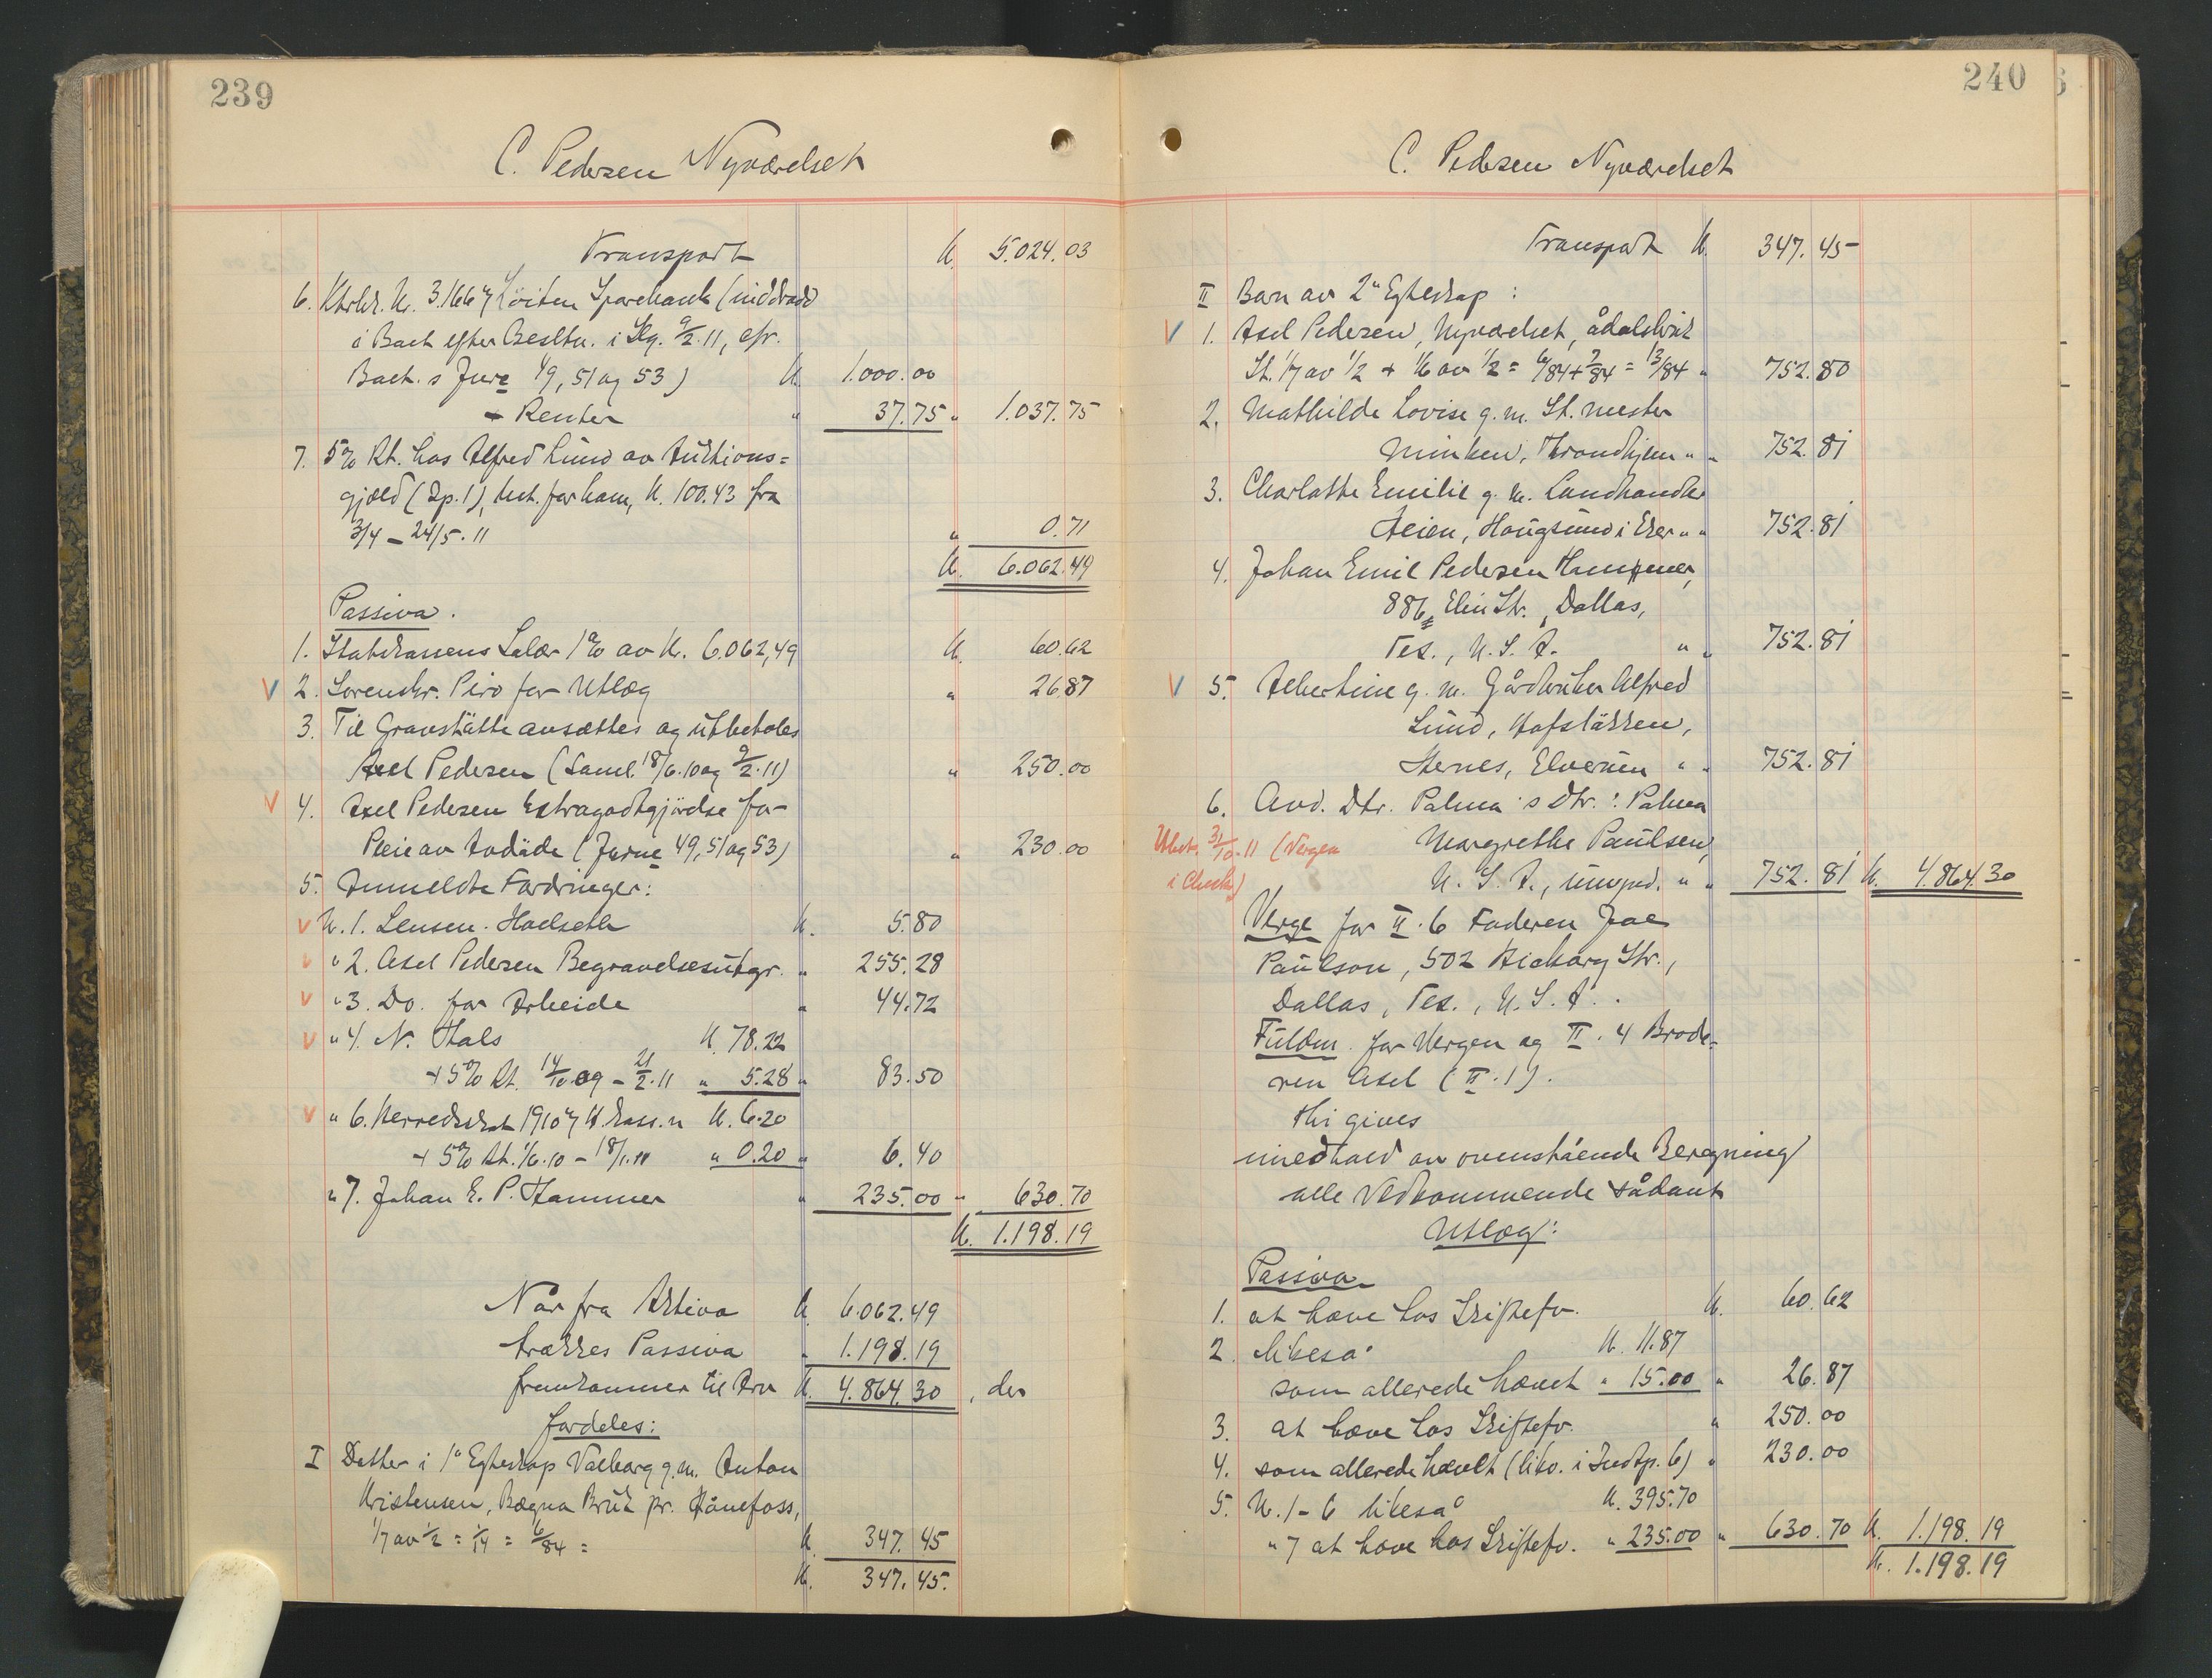 239
C. Pedersen Nyværelset
Transport K. 5.024.03
6. Ktrbk. Nr. 3.166 Løiten Sparebank (inddradd
i Bact efter Besltn. i Slg. 9/2.11, cfr.
Bact. s Jurc 49, 51 og 53) K. 1.000.00
+ Renter " 37.75 " 1.037.75
7. 5% Rt. hos Alfred Lund av Auktions=
gjæld (Ip. 1), bet. for ham, K. 100.43 fra
3/4 - 24/5.11 " 0.71
K. 6.062.49
Passiva.
1. Statskassens Salær 1% av K. 6.062,49 K. 60.62
V 2. Sorenskr. Piro for Utlæg " 26.87
3. Til Gravstøtte ansættes og utbetales
Axel Pedersen (Saml. 18/6.10 og 9/2.11) " 250.00
V 4. Axel Pedersen Extragodtgjørelse for
Pleie av Avdøde (Jurne 49, 51 og 53) " 230.00
5. Anmeldte Fordringer:
V N. 1. Lensm. Hoelseth K. 5.80
V " 2. Axel Pedersen Begravelsesutgr. " 255.28
V " 3. Do. for Arbeide " 44.72
V " 4. N. Thals K. 78.22
+ 5% Rt. 14/10.09 - 21/2.11 " 5.28 " 83.50
V " 6. Herredsskat 1910 H.kass.n K. 6.20
+ 5% Rt. 1/6.10 - 18/1.11 " 0.20 " 6.40
" 7. Johan E. P. Hammer " 235.00 " 630.70
K. 1.198.19
Når fra Aktiva K. 6.062.49
trækkes Passiva " 1.198.19
fremkommer til Arv K. 4.864.30, der
fordeles:
I Datter i 1' Egteskap Valborg g.m. Anton
Kristensen, Bægna Bruk pr. Hønefoss,
1/7 av 1/2 = 1/14 = 6/84 = K. 347.45
K. 347.45.
240
C. Pedersen Nyværelset
Transport K. 347.45
II Barn av 2" Egteskap :
V 1. Axel Pedersen, Nyværelset, Ådalsbruk
St. 1/7 av 1/2 + 1/6 av 1/2 = 6/84 + 7/84 = 13/84 " 752.80
2. Mathilde Lovise g.m. St. mester
Minken, Trondhjem " " 752.81
3. Charlotte Emilie g.m. Landhandler
Aeien, Hougsund i Eker " " 752.81
4. Johan Emil Pedersen Hammer,
886 Elm Str., Dallas,
Tex., U.S.A. " " 752.81
V 5. Albertine g.m. Gårdbruker Alfred
Lund, Hofsløkken,
Hernes, Elverum " " 752.81
6. Avd. Dtr. Palma's Dtr.: Palma
Utbet. 31/10.11 (Vergen Margrethe Paulsen,
i Check) U.S.A., umynd. " " 752.81 K. 4.864.30
Verge for II.6 Faderen Joe
Paulson, 502 Hickory Str.,
Dallas, Tex., U.S.A..
Fuldm. for Vergen og II.4 Brode=
ren Axel (II.1).
Thi gives
imedhold av ovenstående Beregning
alle Vedkommende sådant
Utlæg:
Passiva
1. at hæve hos Skiftefv. K. 60.62
2. likeså K. 11.87
som allerede hævet " 15.00 " 26.87
3. at hæve hos Skiftefv. " 250.00
4. som allerede hævet (likv. i Indtp. 6) " 230.00
5. N. 1-6 likeså K. 395.70
" 7 at hæve hos Skiftefv. " 235.00 " 630.70 K. 1.198.19
K. 1.198.19